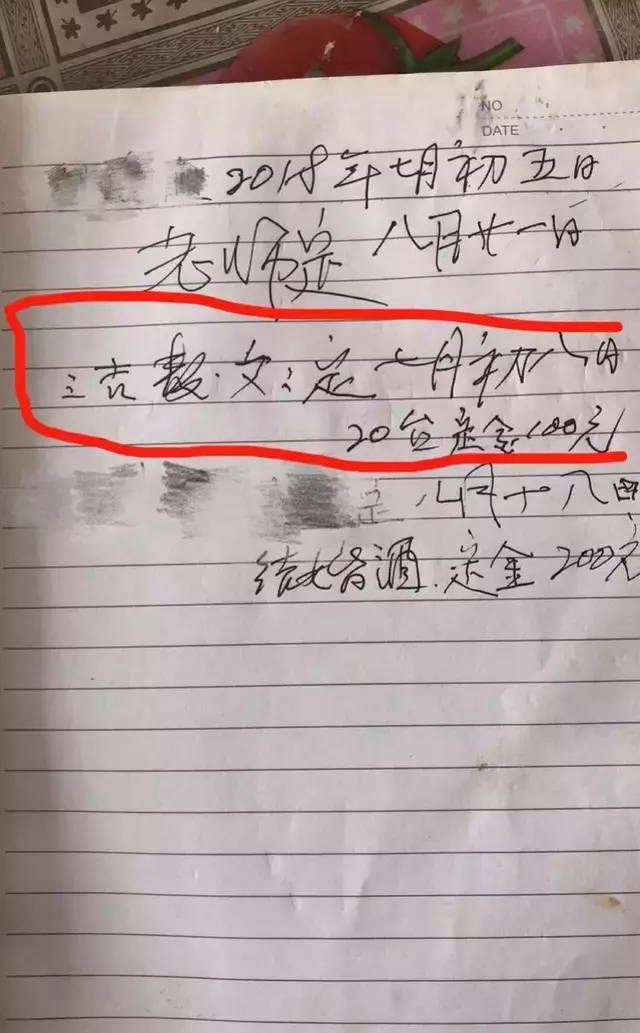 NO
DATE
2018年七月初五日
老师定 八月廿一日
吉 文:定 七月初八日
20台定金100元
八月十八日
结婚酒.定金200元